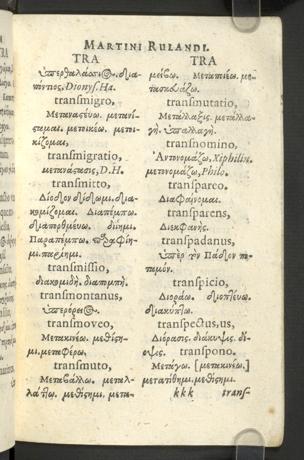 MARTINI RULANDI.
TRA
ὑπερθαλάσσι@. δια-
πόντιος. Dionys. Ha.
transmigro,
Μετανασεύω. μετανί-
σαμαι. μετοικέω. μετοι-
κίζομαι,
transmigratio,
μετανάσασις, D.H.
transmitto,
Διοδον δίδωμι. δια-
κομίζομαι. Διαπέμπω.
διαπορθμεύω. διίημι.
Παραπέμπω.
transmissio,
διακομιδή. διαπομπή.
transmontanus,
ὑπερορει@.
transmoveo,
Μετακινέω. μεθίση-
μι. μεταφέρω.
transmuto,
Μεταβάλλω. μεταλ-
λάττω. μεθίσημι. μετα-
TRA
μείβω. Μεταποιέω. με-
τασκευάζω.
transmutatio,
Μετάλλαξις. μεταλλα-
γή. ὑπαλλαγή.
transnomino,
Ἀντονομάζω, Xiphilin.
μετονομάζω, Philo.
transpareo.
Διαφαίνομαι.
transparens,
Διεκφανής.
transpadanus,
ὑπὲρ τὸν Πάδον πο-
ταμόν.
transpicio,
Διοράω. διοπτεύω.
διακύπτω.
transpectus, us,
Διόρασις. διάκυψις. δί-
οψις. transpono.
Μετάγω. [μετακινέω.]
μετατίθημι. μεθίσημι.
kkk trans-